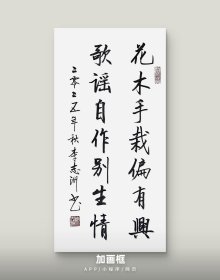 花木手栽偏有興
歌谣自作别生情
二零二五年秋李志洲书
加画框
APP/小程序/网页